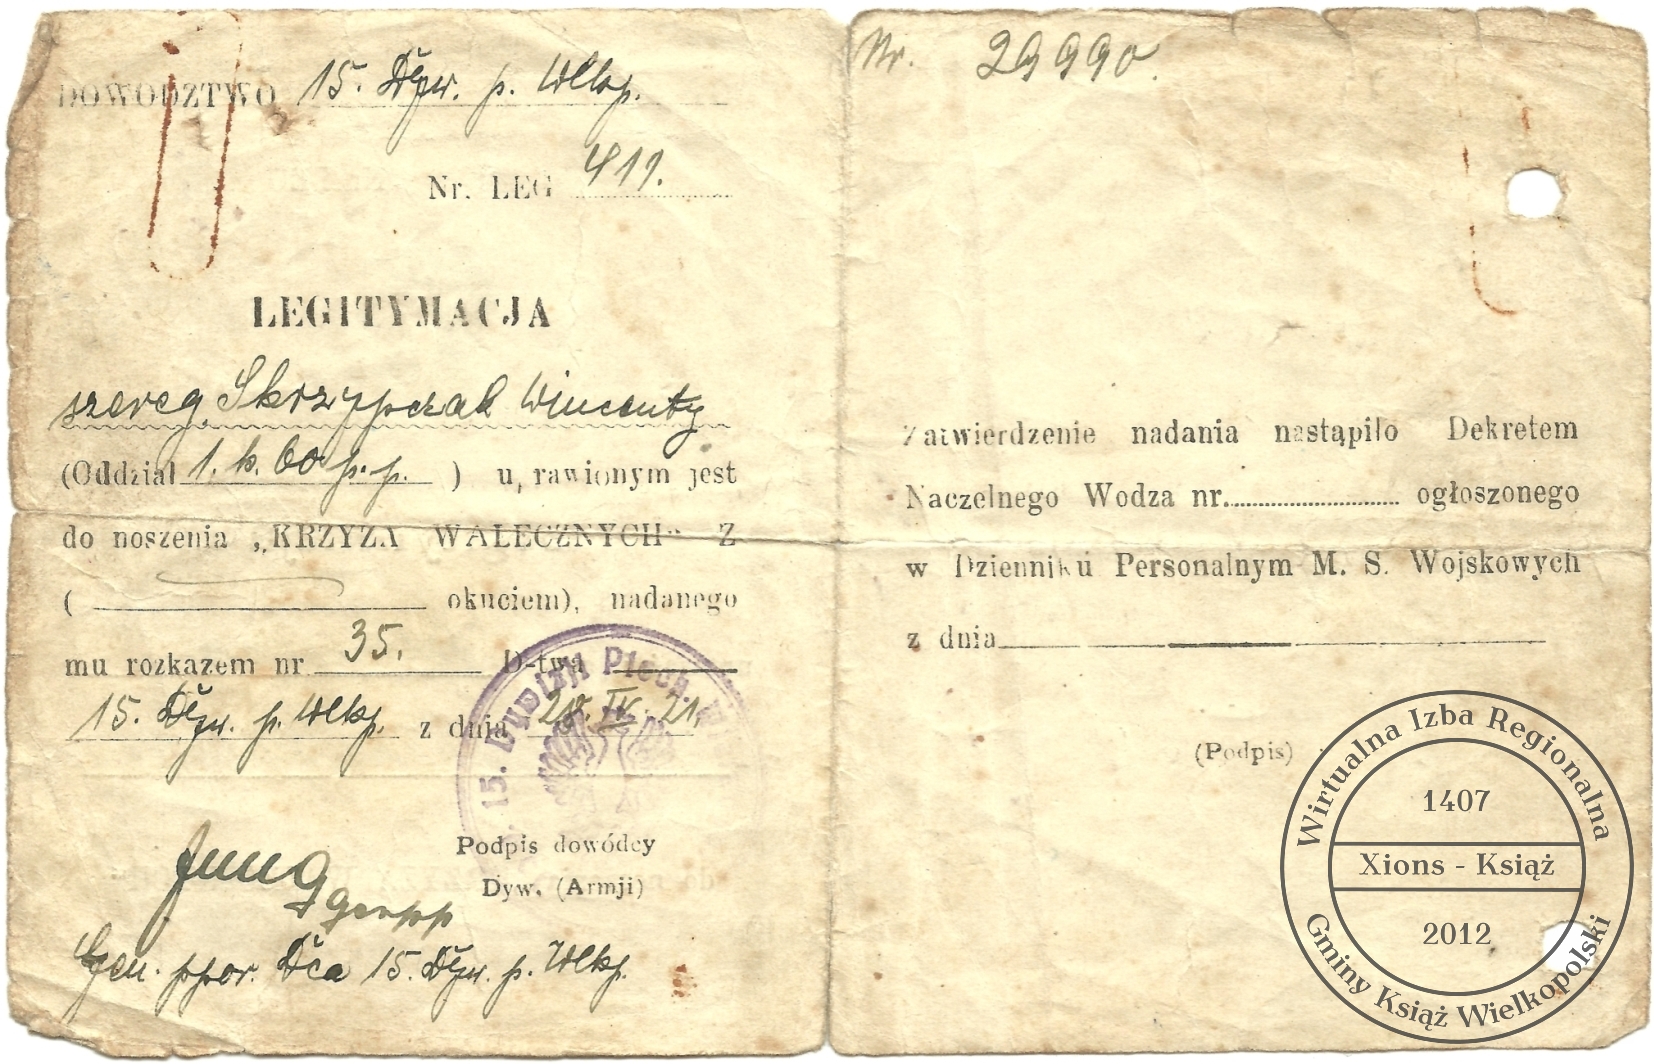 DOWODZTWO 15. Dyw. p. Wlkp.
Nr. LEG 411.
LEGITYMACJA
szereg. Skrzypczak Wincenty
(Oddział 1. k. 60 p. p. ) u,rawionym jest
do noszenia „KRZYŻA WALECZNYCH" Z
( okuciem), nadanego
mu rozkazem nr 35. D-twa
15. Dyw. p. Wlkp. z dnia 28. IV. 21.
15. Dywizji Piech.
Podpis dowódcy
Dyw. (Armji)
Jung
genppor
Gen. ppor. Dca 15. Dyw. p. Wlkp.
Nr. 29990.
Zatwierdzenie nadania nastąpiło Dekretem
Naczelnego Wodza nr. ogłoszonego
w Dzienniku Personalnym M. S. Wojskowych
z dnia
(Podpis)
Wirtualna Izba Regionalna
1407
Xions - Książ
2012
Gminy Książ Wielkopolski